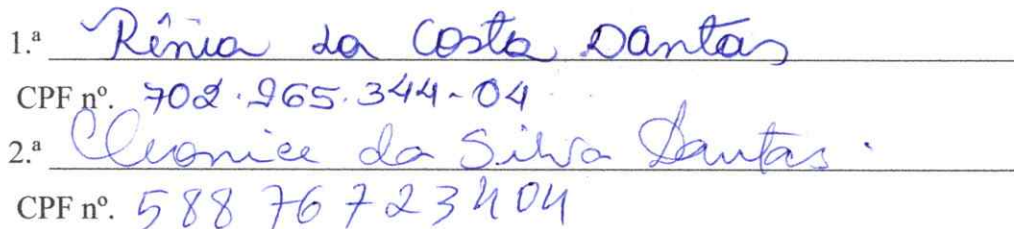 1.ª Rênia da Costa Dantas
CPF nº. 702.965.344-04
2.ª Cleonice da Silva Dantas.
CPF nº. 588 76 723404